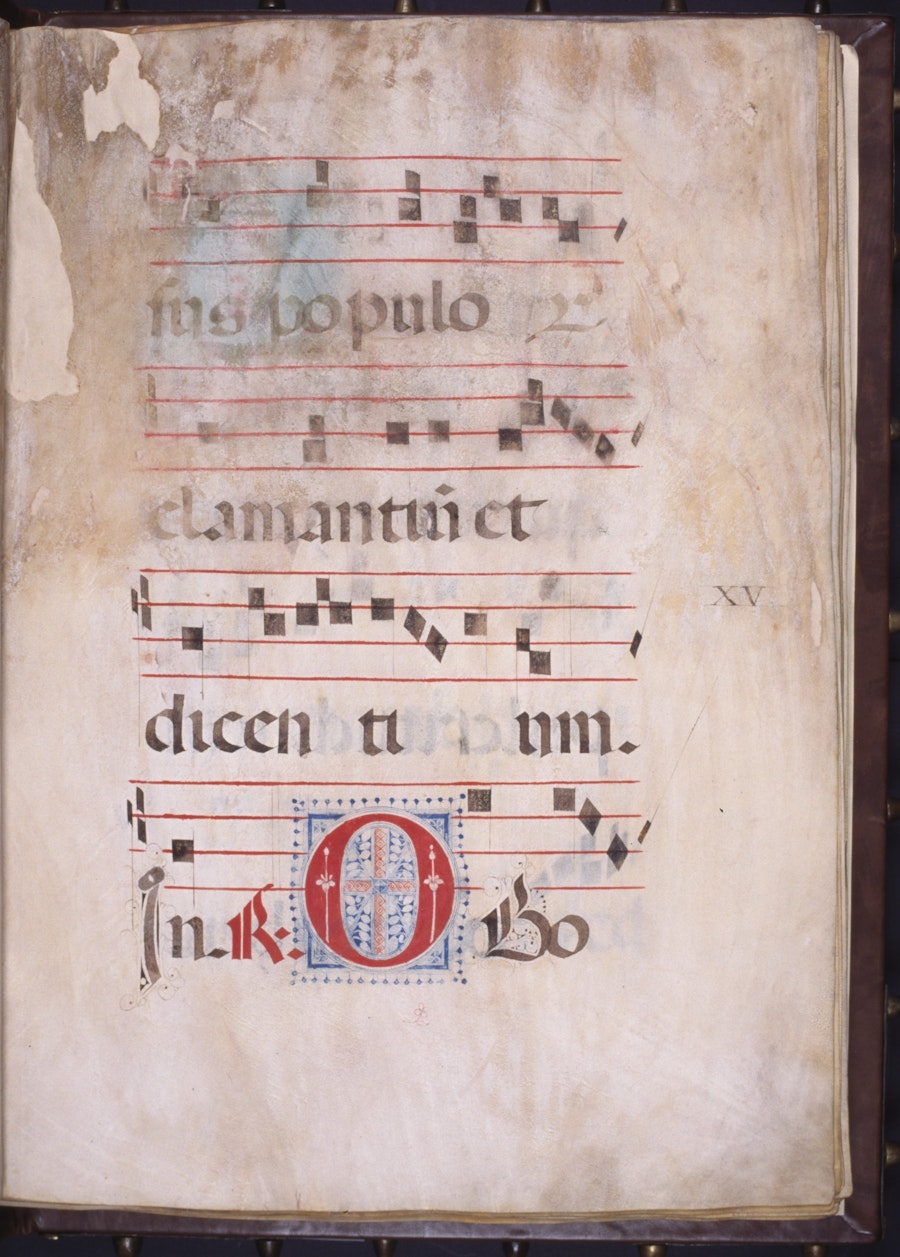 sus populo
clamantiū et
XV
dicen ti um.
In. R: O Bo